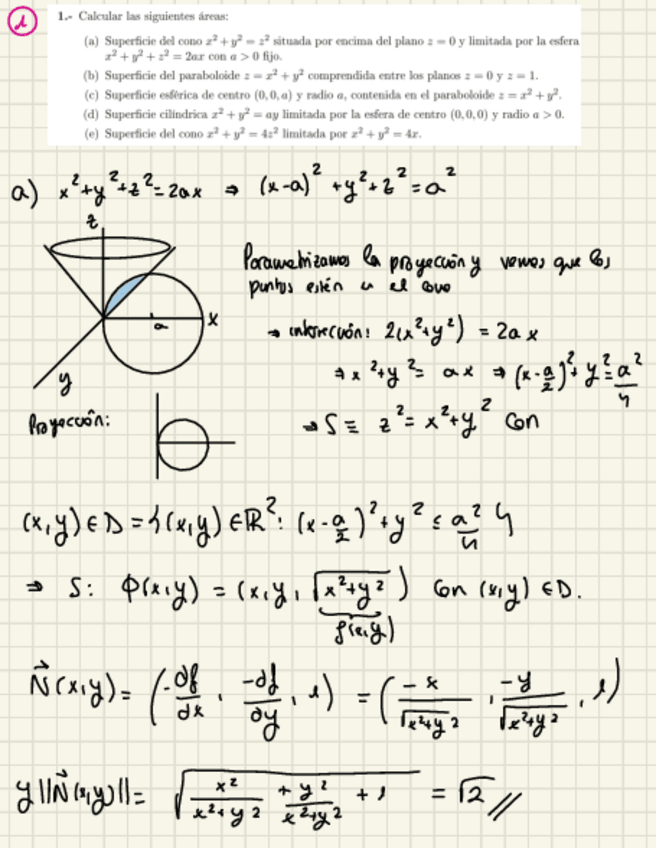 1
1.- Calcular las siguientes áreas:
(a) Superficie del cono x² + y² = z² situada por encima del plano z = 0 y limitada por la esfera
x² + y² + z² = 2ax con a > 0 fijo.
(b) Superficie del paraboloide z = x² + y² comprendida entre los planos z = 0 y z = 1.
(c) Superficie esférica de centro (0, 0, a) y radio a, contenida en el paraboloide z = x² + y².
(d) Superficie cilíndrica x² + y² = ay limitada por la esfera de centro (0, 0, 0) y radio a > 0.
(e) Superficie del cono x² + y² = 4z² limitada por x² + y² = 4x.
a) x²+y²+z²=2ax ⇒ (x-a)²+y²+z²=a²
z
Parametrizamos la proyección y vemos que los
puntos estén en el cono
x
a
y
→ intersección: 2(x²+y²) = 2ax
⇒ x²+y² = ax ⇒ (x-a/2)²+y²=a²/4
Proyección:
⇒ S ≡ z²=x²+y² con
(x,y) ∈ D = {(x,y) ∈ ℝ²: (x-a/2)²+y² ≤ a²/4}
⇒ S: Φ(x,y) = (x, y, √(x²+y²)) con (x,y) ∈ D.
f(x,y)
N⃗(x,y) = (-∂f/∂x, -∂f/∂y, 1) = (-x/√(x²+y²), -y/√(x²+y²), 1)
y ||N⃗(x,y)|| = √(x²/(x²+y²) + y²/(x²+y²) + 1) = √2 //